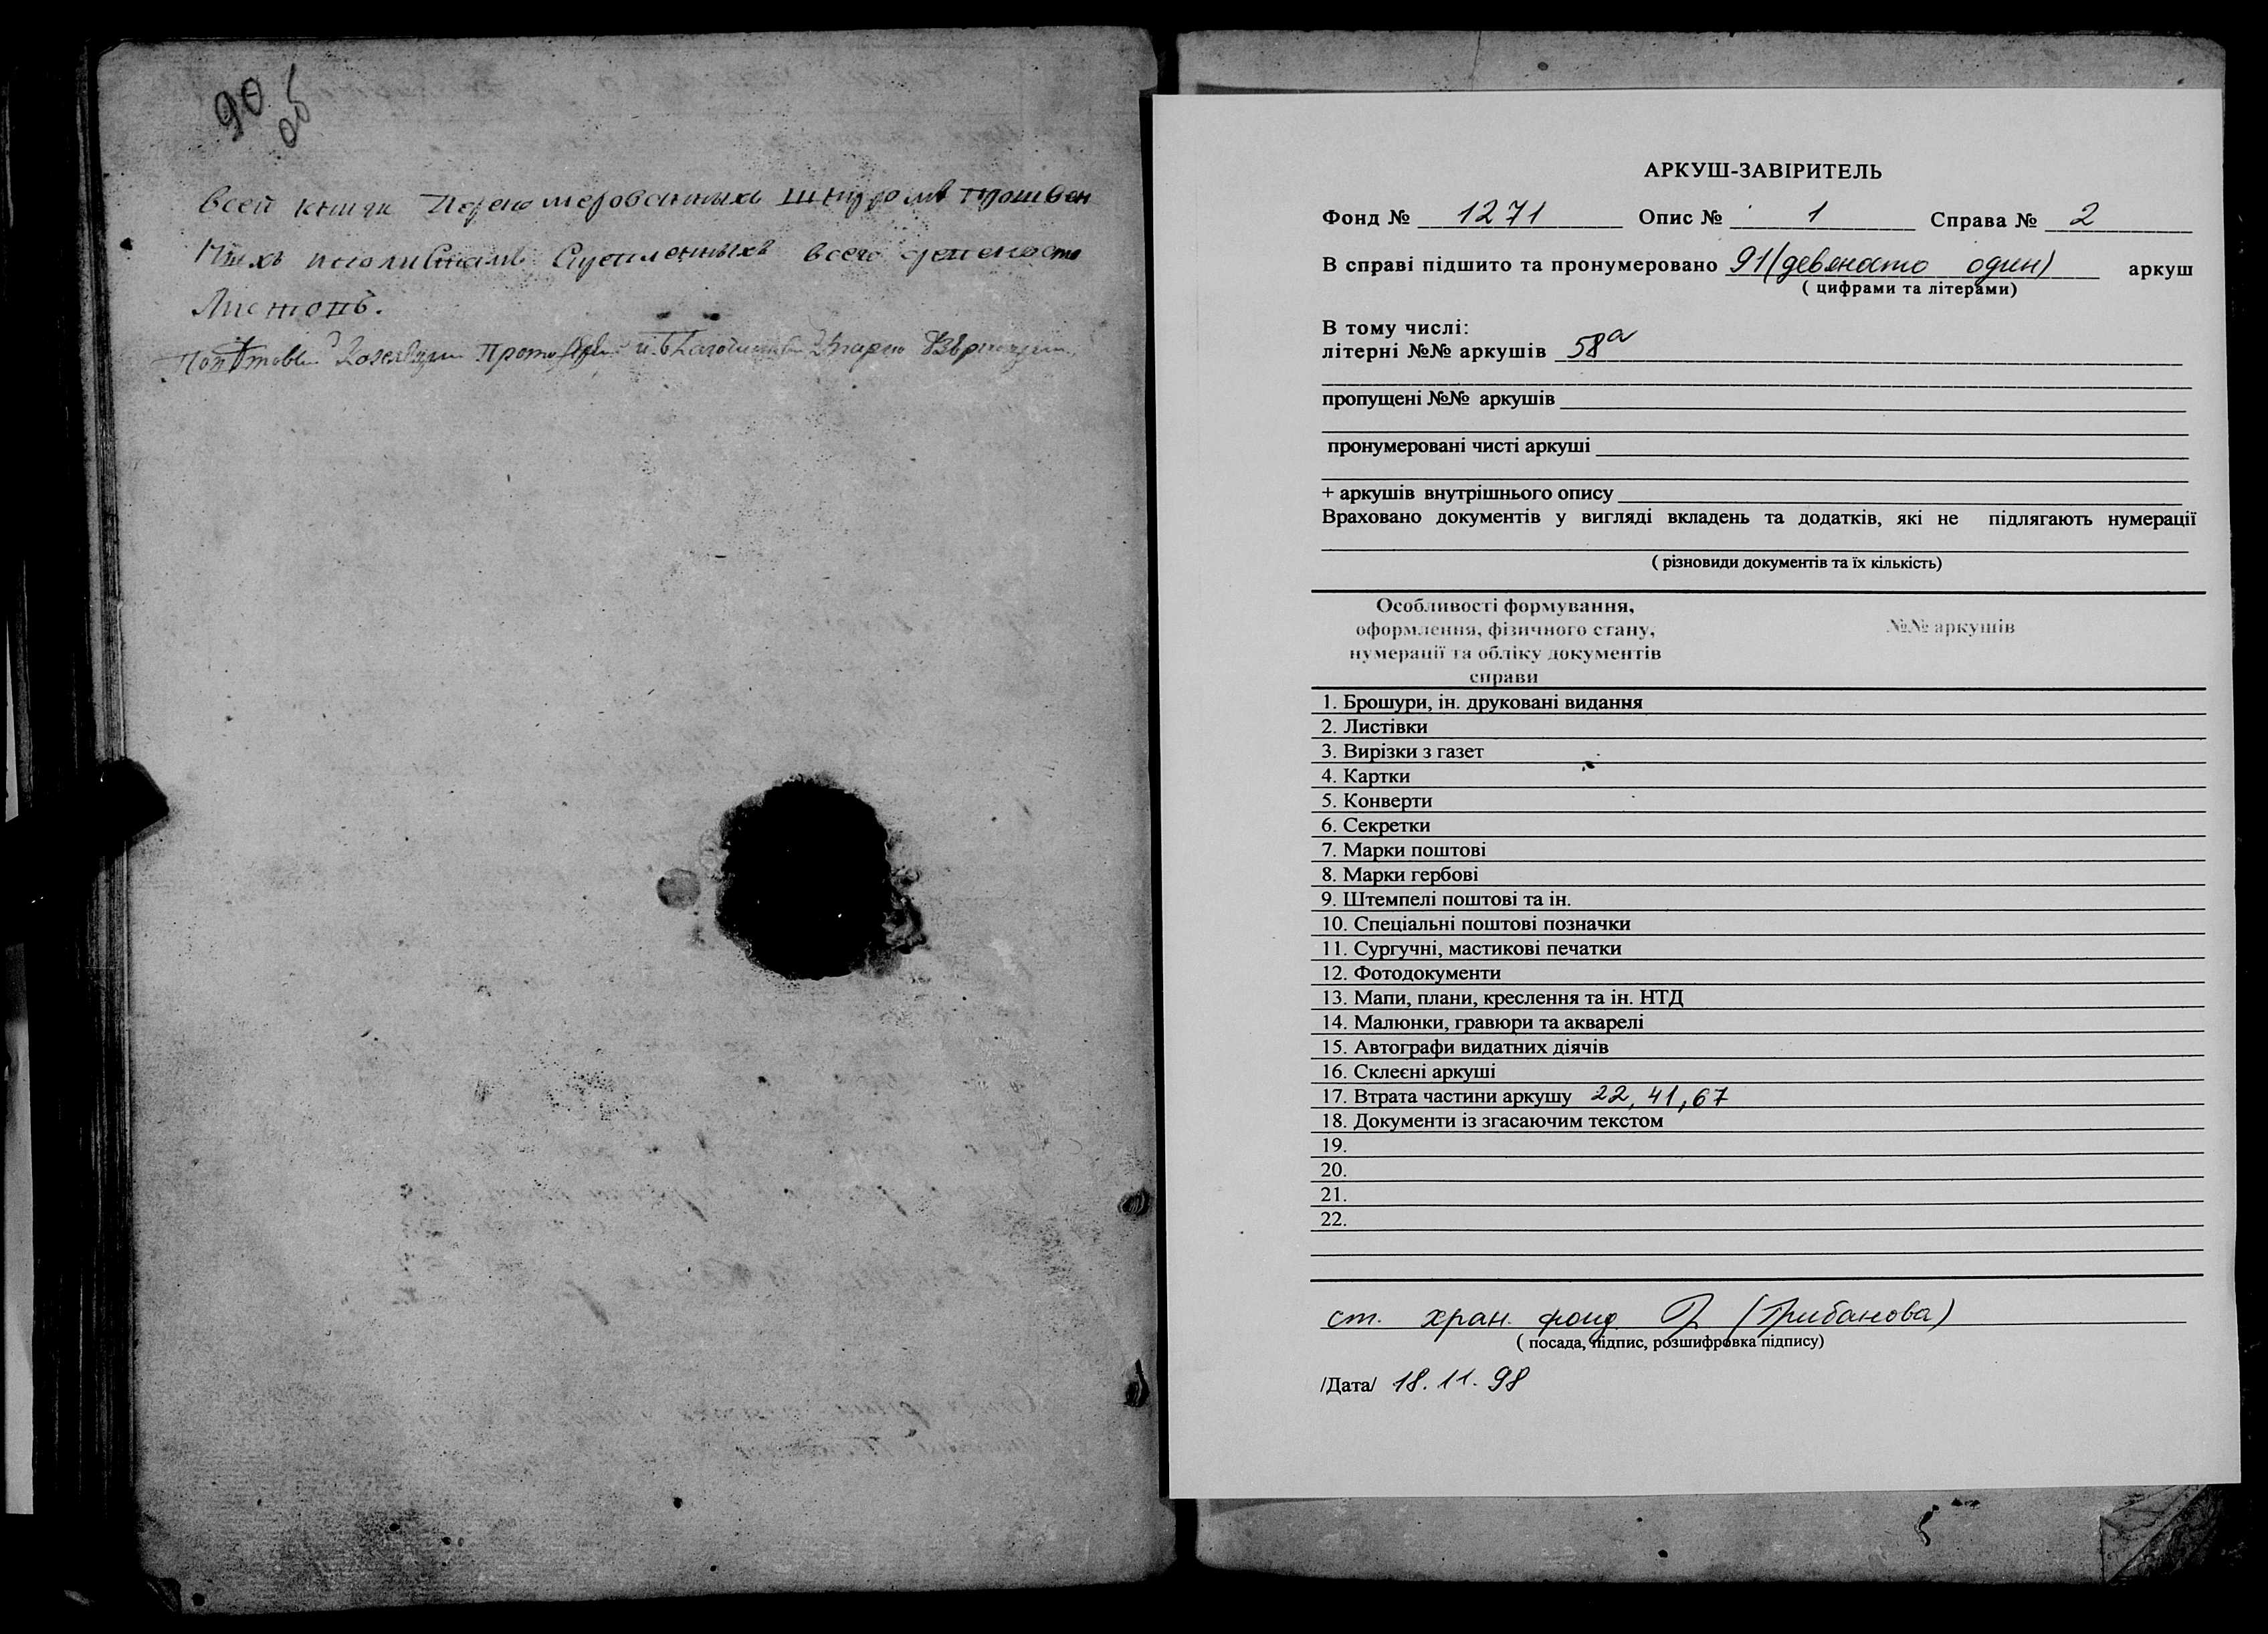 90 об
всей книги Перенумерованныхъ шнуромъ прошвен
всего девеносто
Листовъ.
АРКУШ-ЗАВІРИТЕЛЬ
Фонд № 1271 Опис № 1 Справа № 2
В справі підшито та пронумеровано 91 (девяносто один) аркуш
( цифрами та літерами)
В тому числі:
літерні №№ аркушів 58а
пропущені №№ аркушів
пронумеровані чисті аркуші
+ аркушів внутрішнього опису
Враховано документів у вигляді вкладень та додатків, які не підлягають нумерації
( різновиди документів та їх кількість)
Особливості формування,
оформлення, фізичного стану,
нумерації та обліку документів
справи
№№ аркушів
1. Брошури, ін. друковані видання
2. Листівки
3. Вирізки з газет
4. Картки
5. Конверти
6. Секретки
7. Марки поштові
8. Марки гербові
9. Штемпелі поштові та ін.
10. Спеціальні поштові позначки
11. Сургучні, мастикові печатки
12. Фотодокументи
13. Мапи, плани, креслення та ін. НТД
14. Малюнки, гравюри та акварелі
15. Автографи видатних діячів
16. Склеєні аркуші
17. Втрата частини аркушу 22, 41, 67
18. Документи із згасаючим текстом
19.
20.
21.
22.
ст. хран. фонд. (Грибанова)
( посада, підпис, розшифровка підпису)
/Дата/ 18.11.98